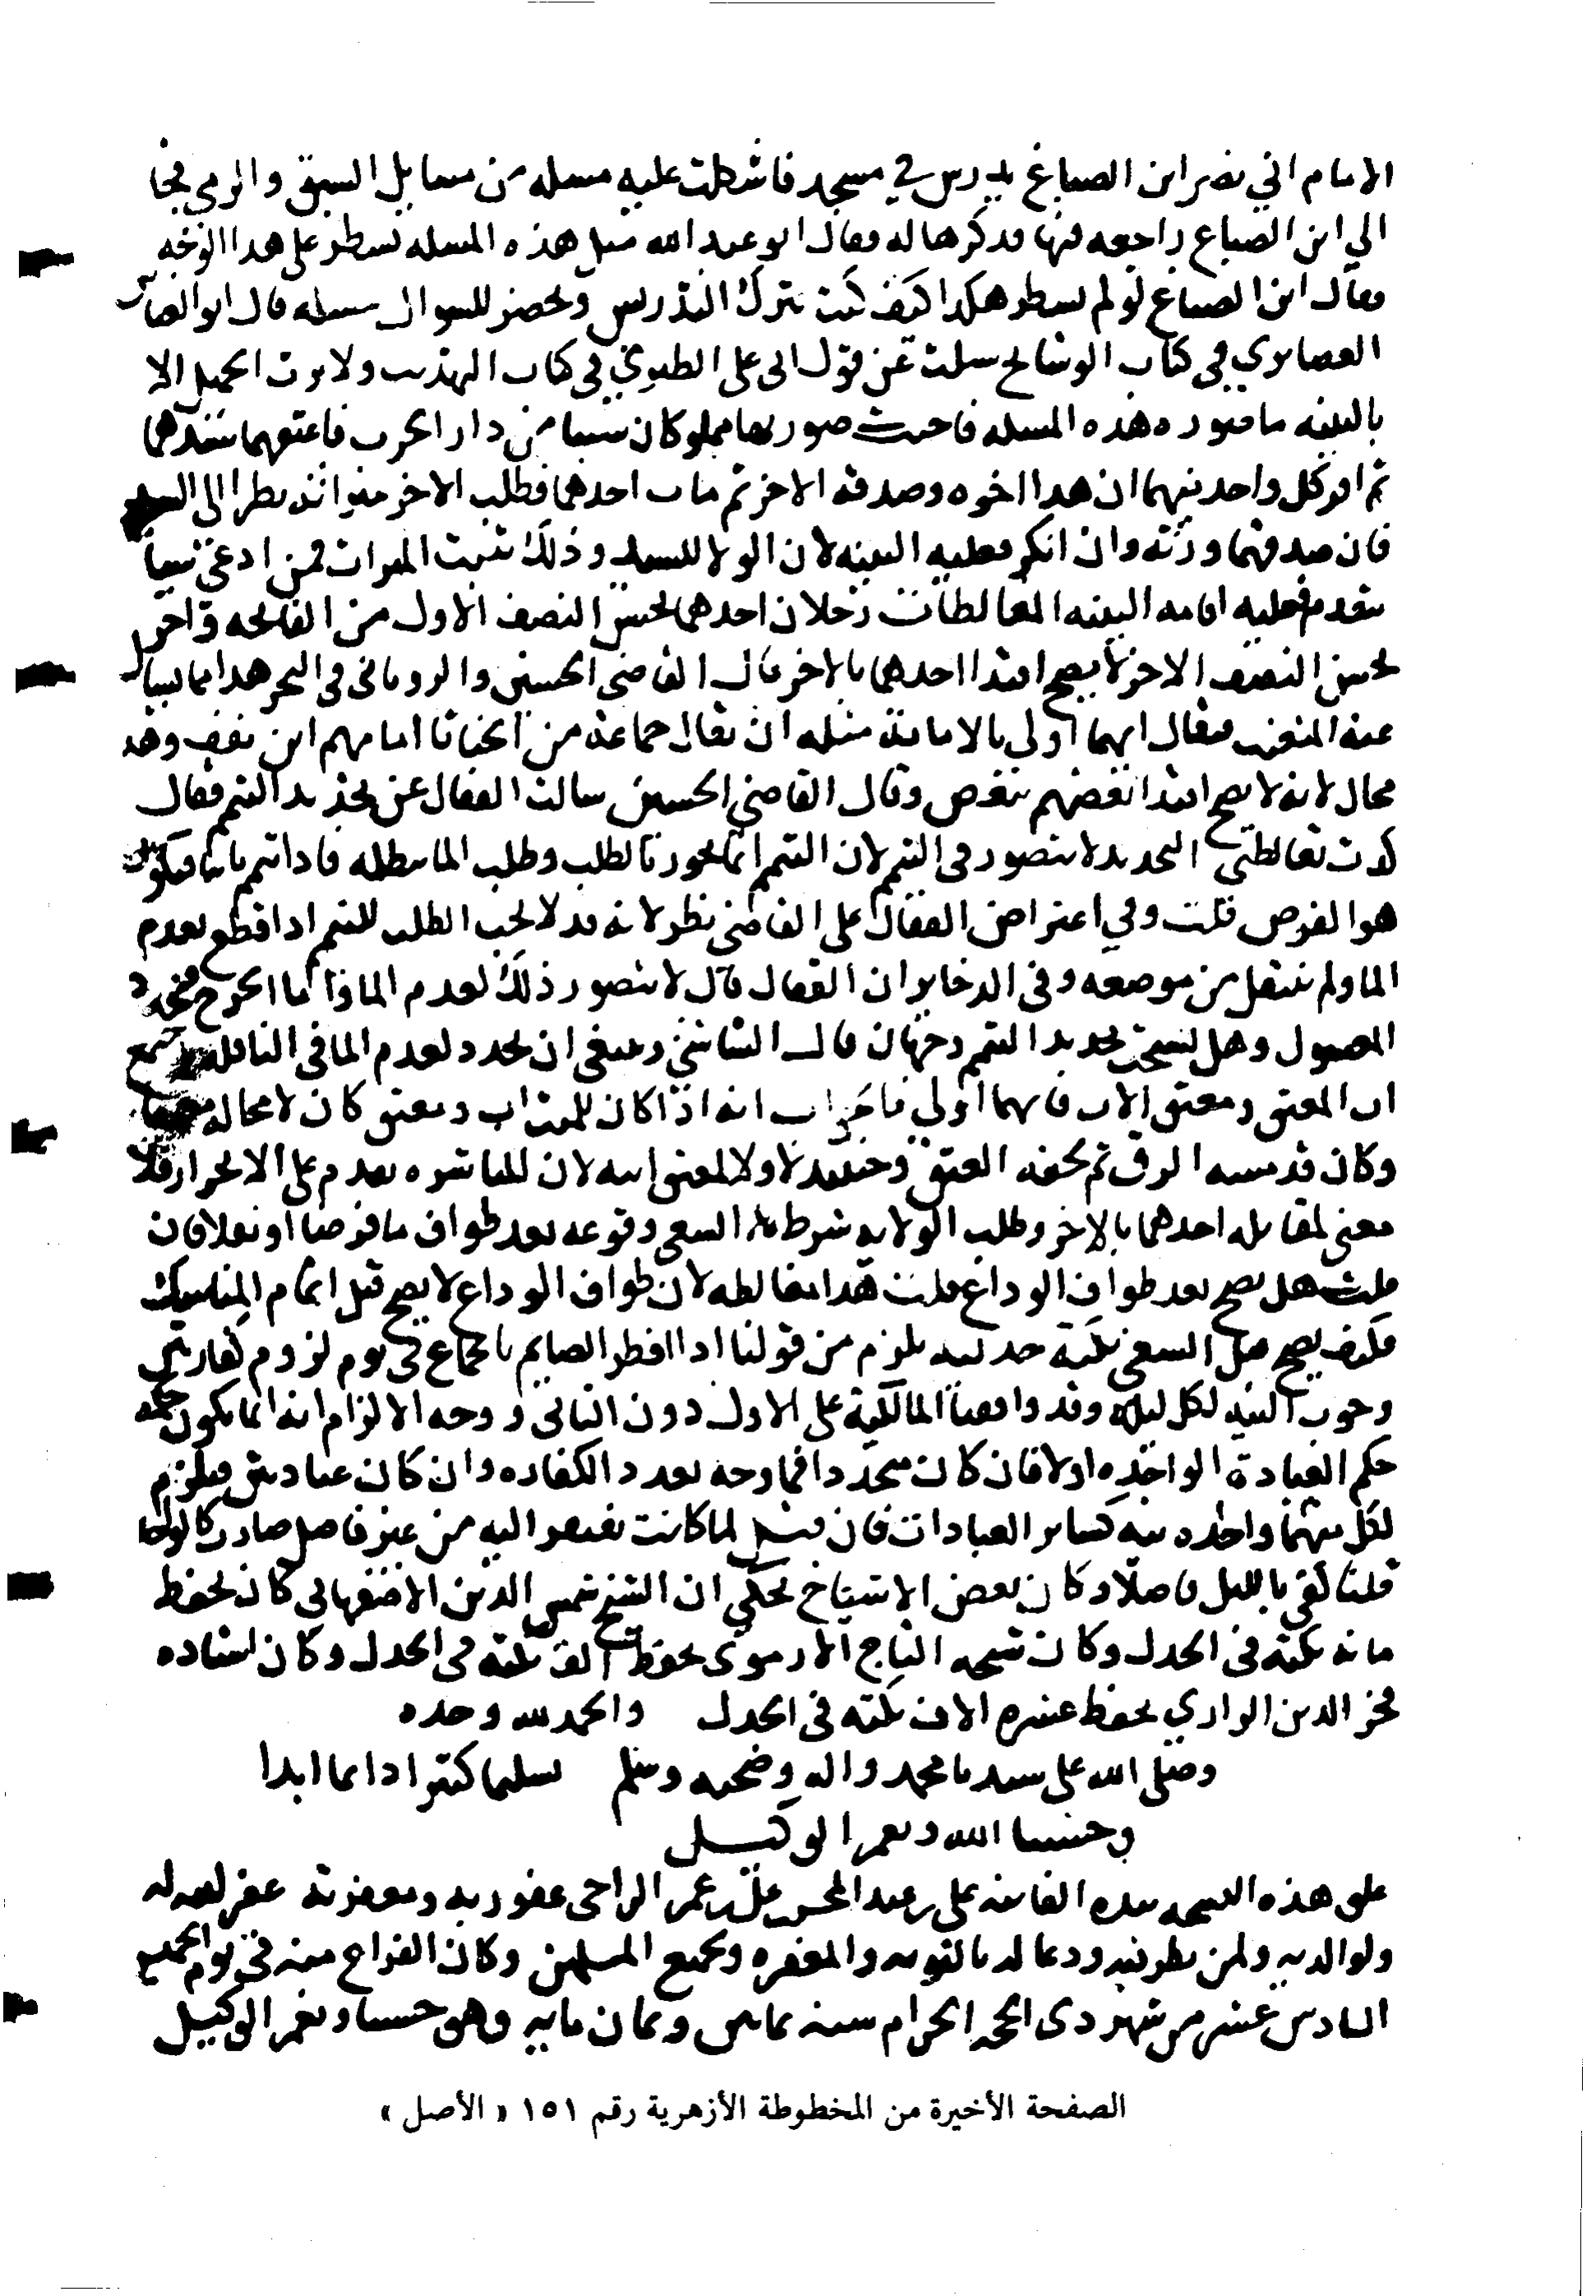 الامام ابي نصر ابن الصباغ يدرس في مسجد فاشكلت عليه مسله من مسايل السبق والرمي فجا
الي ابن الصباغ راجعه فيها فذكرها له فقال ابو عبد الله مثل هذه المسله تسطر على هدا الوجه
فقال ابن الصباغ لو لم تسطر هكدا كيف كنت تترك التدريس وتحضر للسوال مسله قال ابو
في كتاب الوشاح سيلت عن قول ابي على الطبري في كتاب ولا يرث الحميل الا
بالبينه ما صوره هذه المسله فاجبت صورتها مملوكان سبيا من دار الحرب فاعتقهما سيدهما
ثم اقر كل واحد منهما ان هدا اخوه وصدقه الاخر ثم مات احدهما فطلب الاخر ميراثه نظر الى السيد
فان صدقهما ورثه وان انكر فعليه البينه لان الولا للسيد وذلك يثبت الميراث فمن ادعى نسبا
يتقدم فعليه اقامه البينه المغالطات رجلان احدهما يحسن النصف الاول من الفاتحه واخر
يحسن النصف الاخر لا يصح اقتدا احدهما بالاخر قال القاضي الحسين والروياني في البحر هدا مما يسال
عنه المتعنت فيقال ايهما اولي بالامامة مثله ان يقال جماعة من الخناثا امامهم ابن نصف وهد
محال لانه لا يصح اقتدا بعضهم ببعض وقال القاضي الحسين سالت القفال عن تجديد التيمم فقال
لدت تغالطني التجديد لا يتصور في التيمم لان التيمم انما يجوز بالطلب وطلب الما يبطله فاداتيمم ثانيا فيكون
هو الفرض قلت وفي اعتراض القفال على القاضي نظر لانه قد لا يجب الطلب للتيمم ادا قطع بعدم
الما ولم ينتقل من موضعه وفي الدخاير ان القفال قال لا يتصور ذلك لعدم الما فاما الجرح
وهل يستحب تجديد التيمم وجهان قال الشاشي وينبغي ان يجدد لعدم الما في النافله
اب المعتق ومعتق الاب فايهما اولي فالجواب انه اذا كان للميت اب ومعتق كان لا محاله
وكان قد مسه الرق ثم لحقه العتق وحينيد لا ولا لمعتق ابيه لان للمباشره يقدم على الانجرار فلا
معنى لمقابله احدهما بالاخر وطلب الولايه شرط السعي وقوعه بعد طواف ما فرضا او نفلا فان
قلت هل يصح بعد طواف الوداع قلت هدا مغالطه لان طواف الوداع لا يصح قبل اتمام المناسك
فكيف يصح قبل السعي نكتة جدليه يلزم من قولنا ادا افطر الصايم بالجماع في يوم لزوم كفارتين
وجوب النيه لكل ليله وقد وافقنا المالكية على الاول دون الثاني ووجه الالزام انه انما يكون
حكم العبادة الواحده اولا فان كان متحدا فما وجه تعدد الكفاره وان كان عبادتين فيلزم
لكل منهما واحده نيه كساير العبادات فان قيل لما كانت تفتقر اليه من غير فاصل صارت كالواحده
قلنا كفى بالليل فاصلا وكان بعض الاشياخ يحكي ان الشيخ شمس الدين الاصفهاني كان يحفظ
مائه نكته في الجدل وكان شيخه التاج الارموي يحفظ الف نكته في الجدل وكان استاده
فخر الدين الرازي يحفظ عشره الاف نكته في الجدل والحمد لله وحده
وصلى الله على سيدنا محمد واله وصحبه وسلم تسليما كثيرا دايما ابدا
وحسبنا الله ونعم الوكيل
علق هذه النسخه بيده الفانيه علي بن عبد المحسن بن عمر الراجى عفو ربه ومغفرته غفر الله له
ولوالديه ولمن نظر فيه ودعا له بالتوبه والمغفره ولجميع المسلمين وكان الفراغ منه في يوم
السادس عشر من شهر دى الحجه الحرام سنه ثمانين وثمان مايه وهو حسبنا ونعم الوكيل
الصفحة الأخيرة من المخطوطة الأزهرية رقم ١٥١ « الأصل »